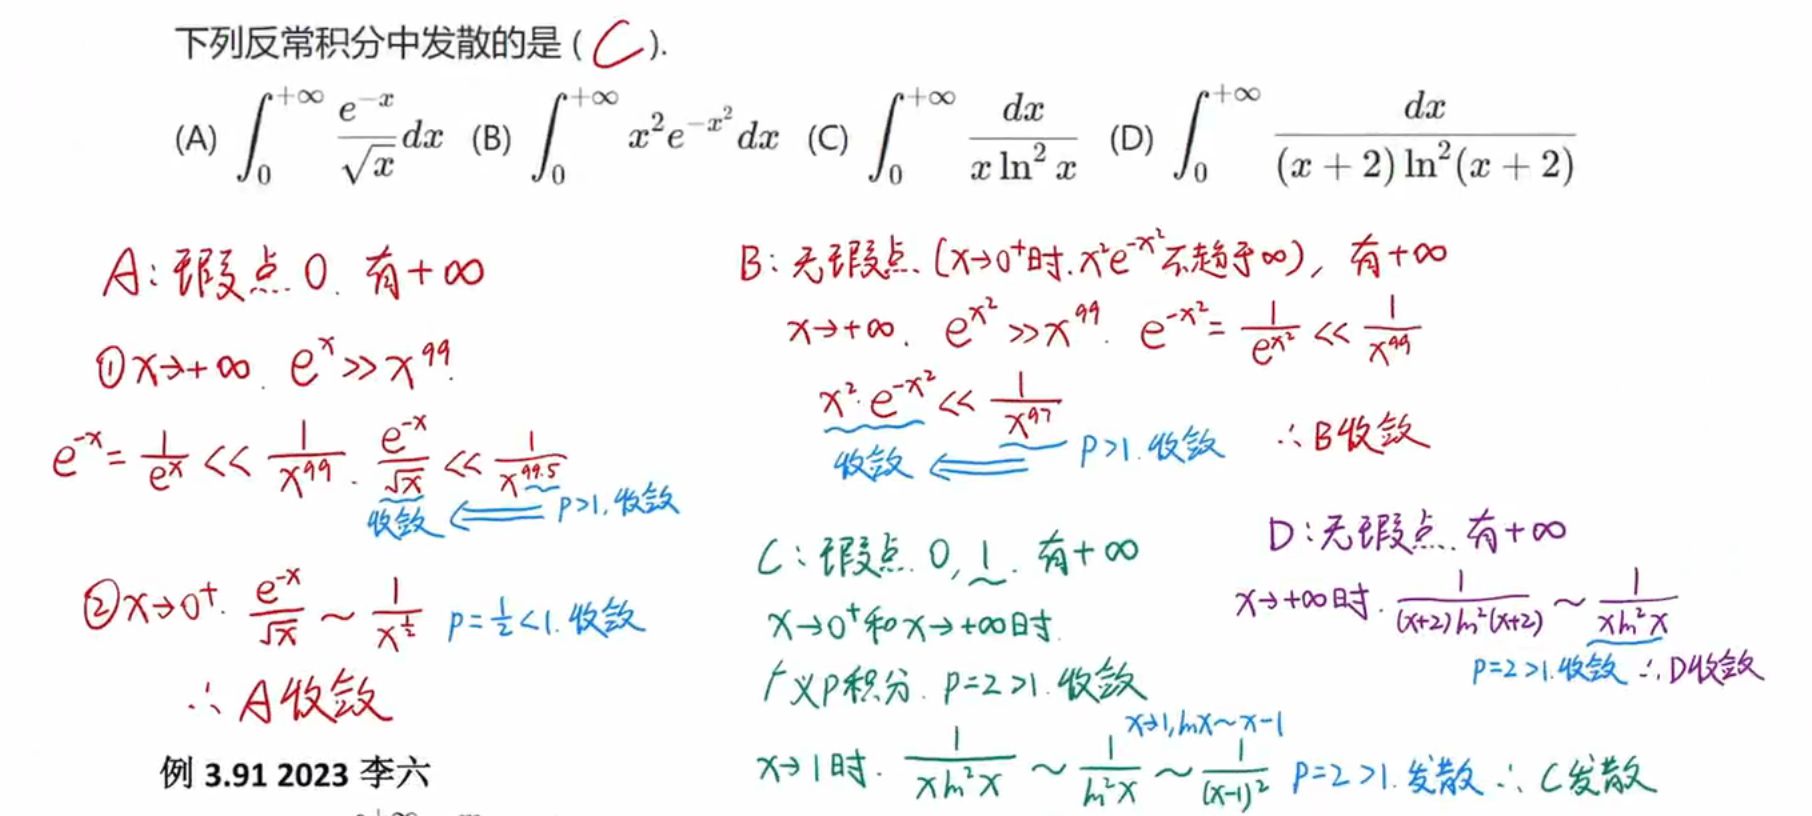 下列反常积分中发散的是 ( C ).
(A) ∫₀^{+∞} e^{-x}/√x dx (B) ∫₀^{+∞} x²e^{-x²} dx (C) ∫₀^{+∞} dx/(x ln² x) (D) ∫₀^{+∞} dx/((x + 2) ln²(x + 2))
A: 瑕点 0. 有+∞
① x→+∞. e^x >> x^99.
e^{-x} = 1/e^x << 1/x^99. e^{-x}/√x << 1/x^{99.5}
收敛 ⇐ P>1. 收敛
② x→0⁺. e^{-x}/√x ~ 1/x^{1/2} P=1/2<1. 收敛
∴ A收敛
B: 无瑕点. (x→0⁺时. x²e^{-x²}不趋于∞), 有+∞
x→+∞. e^{x²} >> x^99. e^{-x²} = 1/e^{x²} << 1/x^99
x²·e^{-x²} << 1/x^97
收敛 ⇐ P>1. 收敛 ∴B收敛
C: 瑕点. 0, 1. 有+∞
x→0⁺和x→+∞时.
广义P积分. P=2>1. 收敛
x→1, lnx~x-1
x→1时. 1/(x ln²x) ~ 1/ln²x ~ 1/(x-1)² P=2>1. 发散 ∴ C发散
D: 无瑕点. 有+∞
x→+∞时. 1/((x+2)ln²(x+2)) ~ 1/(x ln²x)
P=2>1. 收敛 ∴D收敛
例 3.91 2023 李六